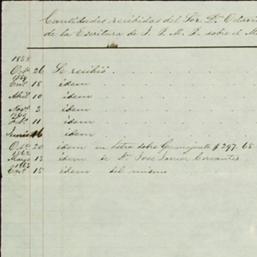 Cantidades recibidas del Sor. Dn. Octavia
de la Escritura de J. L. M. L. sobre el M
Oct. 26 Se recibió
Enº 18 idem
Abril 10 idem
Novº 2 idem
Febº 11 idem
Junio 16 idem
Octº 20 idem en letra sobre Guanajuato $297.68
Mayo 13 idem de Dn. José Javier Cervantes
Enº 15 idem del mismo